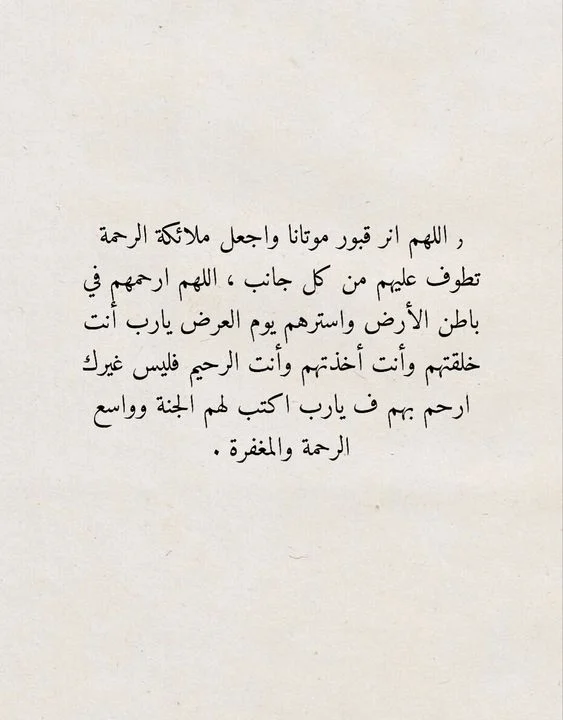 , اللهم انر قبور موتانا واجعل ملائكة الرحمة
تطوف عليهم من كل جانب ، اللهم ارحمهم في
باطن الأرض واسترهم يوم العرض يارب أنت
خلقتهم وأنت أخذتهم وأنت الرحيم فليس غيرك
ارحم بهم ف يارب اكتب لهم الجنة وواسع
الرحمة والمغفرة .